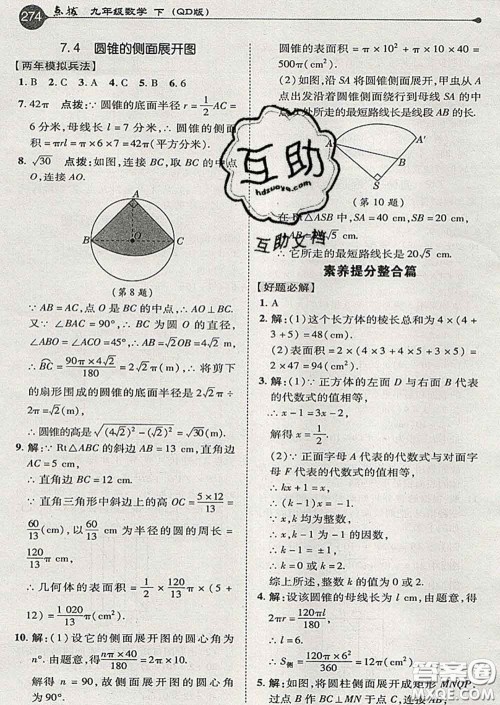 274 点拨 九年级数学 下(QD版)
7.4 圆锥的侧面展开图
【两年模拟兵法】
1. B 2. C 3. C 4. B 5. B 6. 6
7. 42π 点拨:∵ 圆锥的底面半径 r=1/2 AC=
6 分米,母线长 l=7 分米,∴ 圆锥的侧面
积=π×6×7=42π(平方分米).
8. √30 点拨:如图,连接 BC,取 BC 的中点
O,连接 AO.
A
B O C
(第 8 题)
∵ AB=AC,点 O 是 BC 的中点,∴ AO⊥BC.
又∵∠BAC=90°,∴ BC 为⊙O 的直径,
∠ABO=∠ACO=45°.∴ AC=√2OC=4√2.
∴ BC=90π×4√2/180=2√2π.∴ 将剪下
的扇形围成的圆锥的底面半径是 2√2π÷
2π=√2.
∴ 圆锥的高是√(4√2)²-(√2)²=√30.
9. 解:∵ Rt△ABC 的两直角边 AB=5 cm,
直角边 BC=12 cm,
∴ 斜边 AC=13 cm,
∴ 直角三角形中斜边上的高=5×12/13=
60/13(cm),以 60/13 cm 为半径的圆的周长=
120/13π cm,
∴ 几何体的表面积=1/2×120/13π×(5+
12)=1 020/13π(cm²).
10. 解:(1)设它的侧面展开图的圆心角为
n°.由题意,得 nπ×40/180=2π×10,
解得 n=90,故侧面展开图的圆心角
为 90°.
(2)如图,沿 SA 将圆锥侧面展开,甲虫从 A
出发沿着圆锥侧面绕行到母线 SA 的中
处所走的最短路线长是线段 AB 的长.
A A′
B
S
(第 10 题)
在Rt△ASB 中,SA=40 cm,SB=20 cm,
20√5 cm.
∴ 它所走的最短路线长是 20√5 cm.
素养提分整合篇
【好题必解】
1. A
2. 解:(1)这个长方体的棱长总和为 4×(4
+3+5)=48(cm).
(2)表面积=2×4×3+2×4×5+2×3×
5=94(cm²).
3. 解:(1)∵ 正方体的左面 D 与右面 B 代表
的代数式的值相等,
∴ x-1=3x-2,
解得 x=1/2.
(2)∵ 正面字母 A 代表的代数式与对面字
母 F 代表的代数式的值相等,
∴ kx+1=x,
∴ (k-1)x=-1,
∵ x 为整数,
∴ x,k-1 均为整数,
∴ k-1=±1,
∴ 整数 k 的值为 0 或 2.
4. 解:设该圆锥的母线长为 l cm,由题意,得
2πr=120πl/180,
∴ l=6,
∴ S侧=120π×6²/360=12π(cm²).
5. 解:将圆柱侧面展开成矩形 MNQP,
过点 B 作 BC⊥
互助
hdzuoye.com
互助文档
答案圈
MXQE.COM